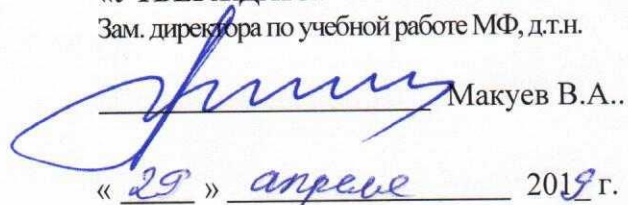 Зам. директора по учебной работе МФ, д.т.н.
Макуев В.А..
« 29 » апреля 2019 г.